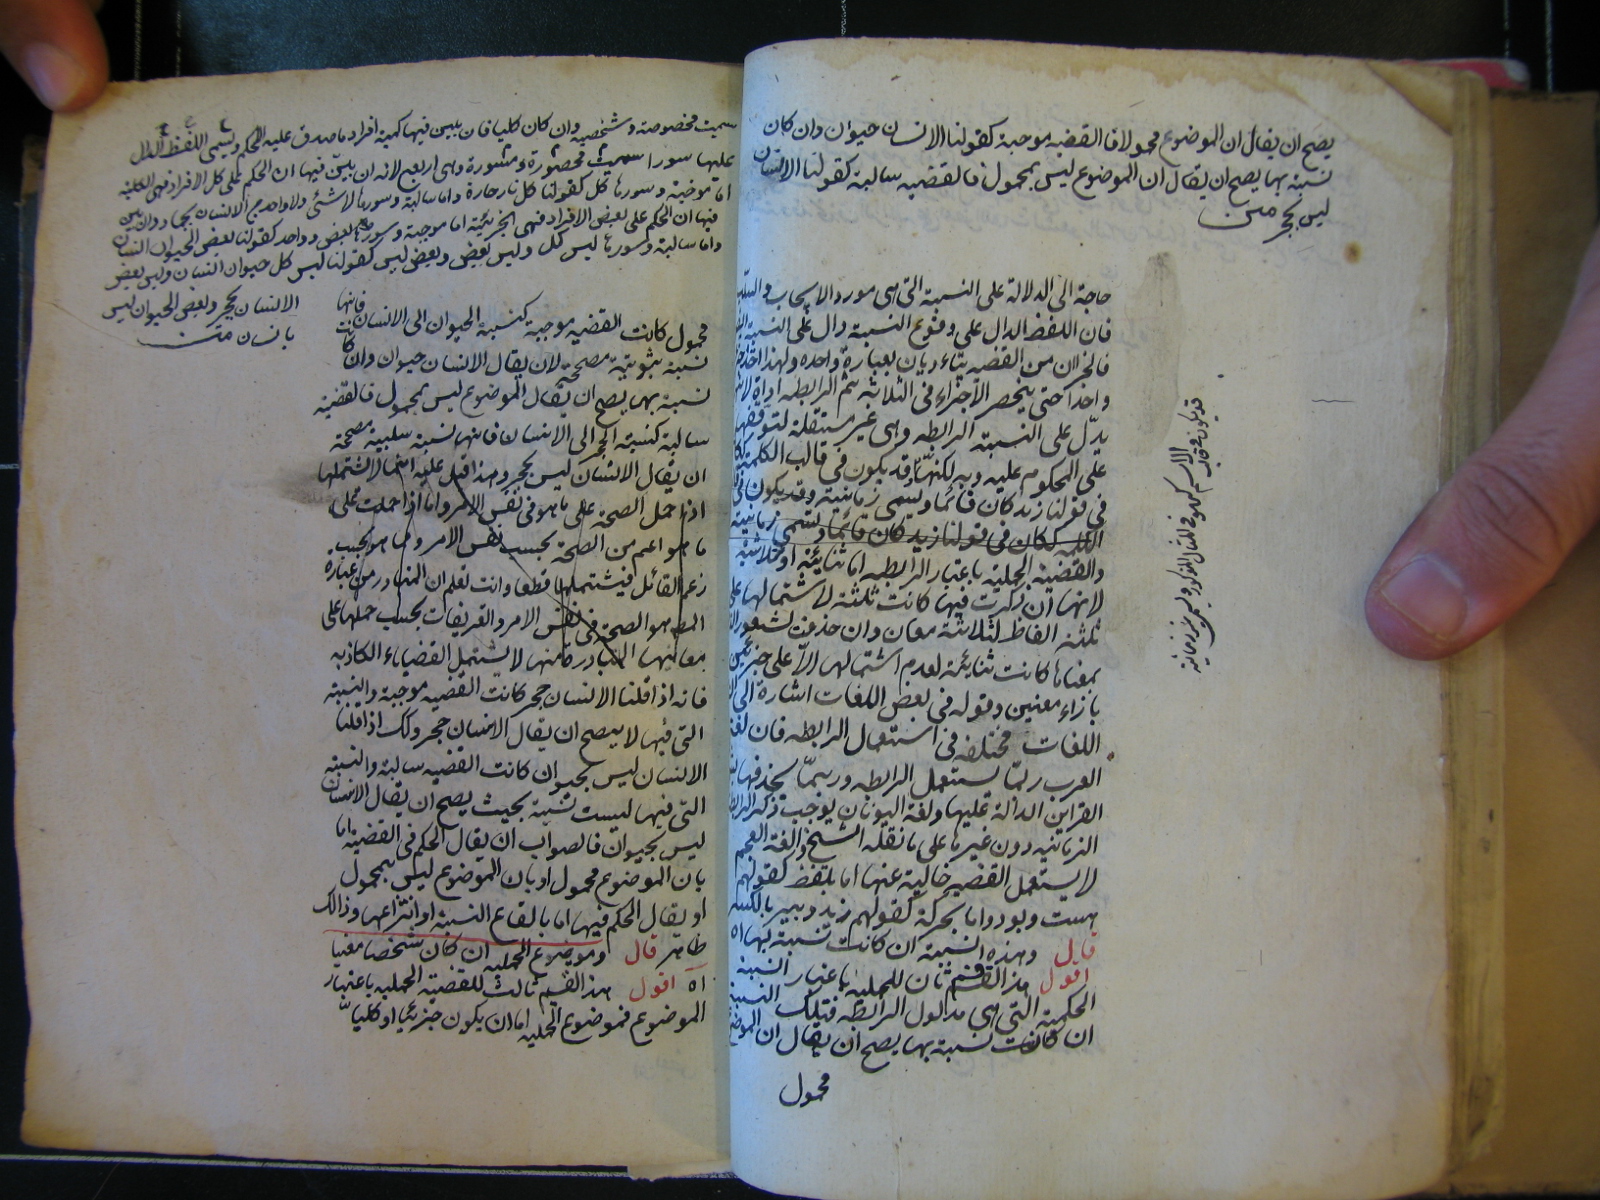 يصح ان يقال ان الموضوع محمول فالقضيه موجبة كقولنا الانسان حيوان وان كان
نسبة بها يصح ان يقال ان الموضوع ليس بمحمول فالقضيه سالبة كقولنا الانسان
ليس بحجر متن
حاجة الى الدلالة على النسبة التى هى مورد الايجاب والسلب
فان اللفظ الدال على وقوع النسبة دال على النسبة
فالجزءان من القضيه يتأديان بعبارة واحده ولهذا اخذا جزءا
واحدا حتى ينحصر الاجزاء فى الثلاثة ثم الرابطه اداة
يدل على النسبة الرابطه وهى غير مستقلة لتوقفها
على المحكوم عليه وبه لكنها قد يكون فى قالب الكلمة ككان
فى قولنا زيد كان قائما ويسمى زمانية وقد يكون فى
الكلمه ككان فى قولنا زيد كان قائما وتسمى زمانية
والقضية الحملية باعتبار الرابطه اما ثنائية او ثلاثية
لانها ان ذكرت فيها كانت ثلثية لاشتمالها على
ثلثه الفاظ لثلاثة معان وان حذفت لشعور
بمعناها كانت ثنائية لعدم اشتمالها الا على جزئين
بازاء معنيين وقوله فى بعض اللغات اشارة الى
اللغات مختلفه فى استعمال الرابطه فان لغة
العرب ربما يستعمل الرابطه وربما يحذفها
القراين الدالة عليها ولغة اليونان يوجب ذكر الرابطة
الزمانيه دون غيرها على ما نقله الشيخ ولغة العجم
لا يستعمل القضيه خالية عنها اما بلفظ كقولهم
هست وبود واما بحركة كقولهم زيد دبير بالكسر
قال وهذه النسبة ان كانت نسبة بها اه
اقول هذا تقسيم ثان للحملية باعتبار النسبة
الحكمية التى هى مدلول الرابطه فتلك النسبة
ان كانت نسبة بها يصح ان يقال ان الموضوع
محمول
قد يكون فى قالب
الاسم كهو فى المثال المذكور ويسمى غير زمانية
سميت مخصوصة وشخصيه وان كان كليا فان بين فيها كمية افراد ما صدق عليه الحكم ويسمى اللفظ الدال
عليها سورا سميت محصورة ومسورة وهى اربع لانه ان بين فيها ان الحكم على كل الافراد فهى الكلية
اما موجبة وسورها كل كقولنا كل نار حارة واما سالبة وسورها لاشئ ولا واحد كقولنا لا شئ من الانسان بجماد وان بين
فيها ان الحكم على بعض الافراد فهى الجزئية اما موجبة وسورها بعض وواحد كقولنا بعض الحيوان انسان
واما سالبة وسورها ليس كل وليس بعض وبعض ليس كقولنا ليس كل حيوان انسان وليس بعض
الانسان بحجر وبعض الحيوان ليس
بانسان متن
محمول كانت القضيه موجبة كنسبة الحيوان الى الانسان فانها
نسبة ثبوتية مصححة لان يقال الانسان حيوان وان كانت
نسبة بها يصح ان يقال الموضوع ليس بمحمول فالقضية
سالبة كنسبة الحجر الى الانسان فانها نسبة سلبية مصححة
ان يقال الانسان ليس بحجر وهذا
اذا حمل الصحة على ما هو فى نفس الامر واما اذا حملت على
ما هو اعم من الصحة بحسب نفس الامر وما هو بحسب
زعم القائل فيشتملها قطعا وانت تعلم ان المتبادر من عبارة
المص هو الصحة فى نفس الامر والتعريفات بحسب حملها على
معانيها المتبادرة منها لا يشتمل القضاياء الكاذبه
فانه اذا قلنا الانسان حجر كانت القضيه موجبة والنسبة
التى فيها لا يصح ان يقال الانسان حجر وكك اذا قلنا
الانسان ليس بحيوان كانت القضيه سالبة والنسبة
التى فيها ليست نسبة بحيث يصح ان يقال الانسان
ليس بحيوان فالصواب ان يقال الحكم فى القضية اما
بان الموضوع محمول او بان الموضوع ليس بمحمول
او يقال الحكم فيها اما بايقاع النسبة او انتزاعها وذالك
ظاهر قال وموضوع الحمليه ان كان شخصا معينا
اه اقول هذا تقسيم ثالث للقضية الحمليه باعتبار
الموضوع فموضوع الحمليه اما ان يكون جزئيا او كليا